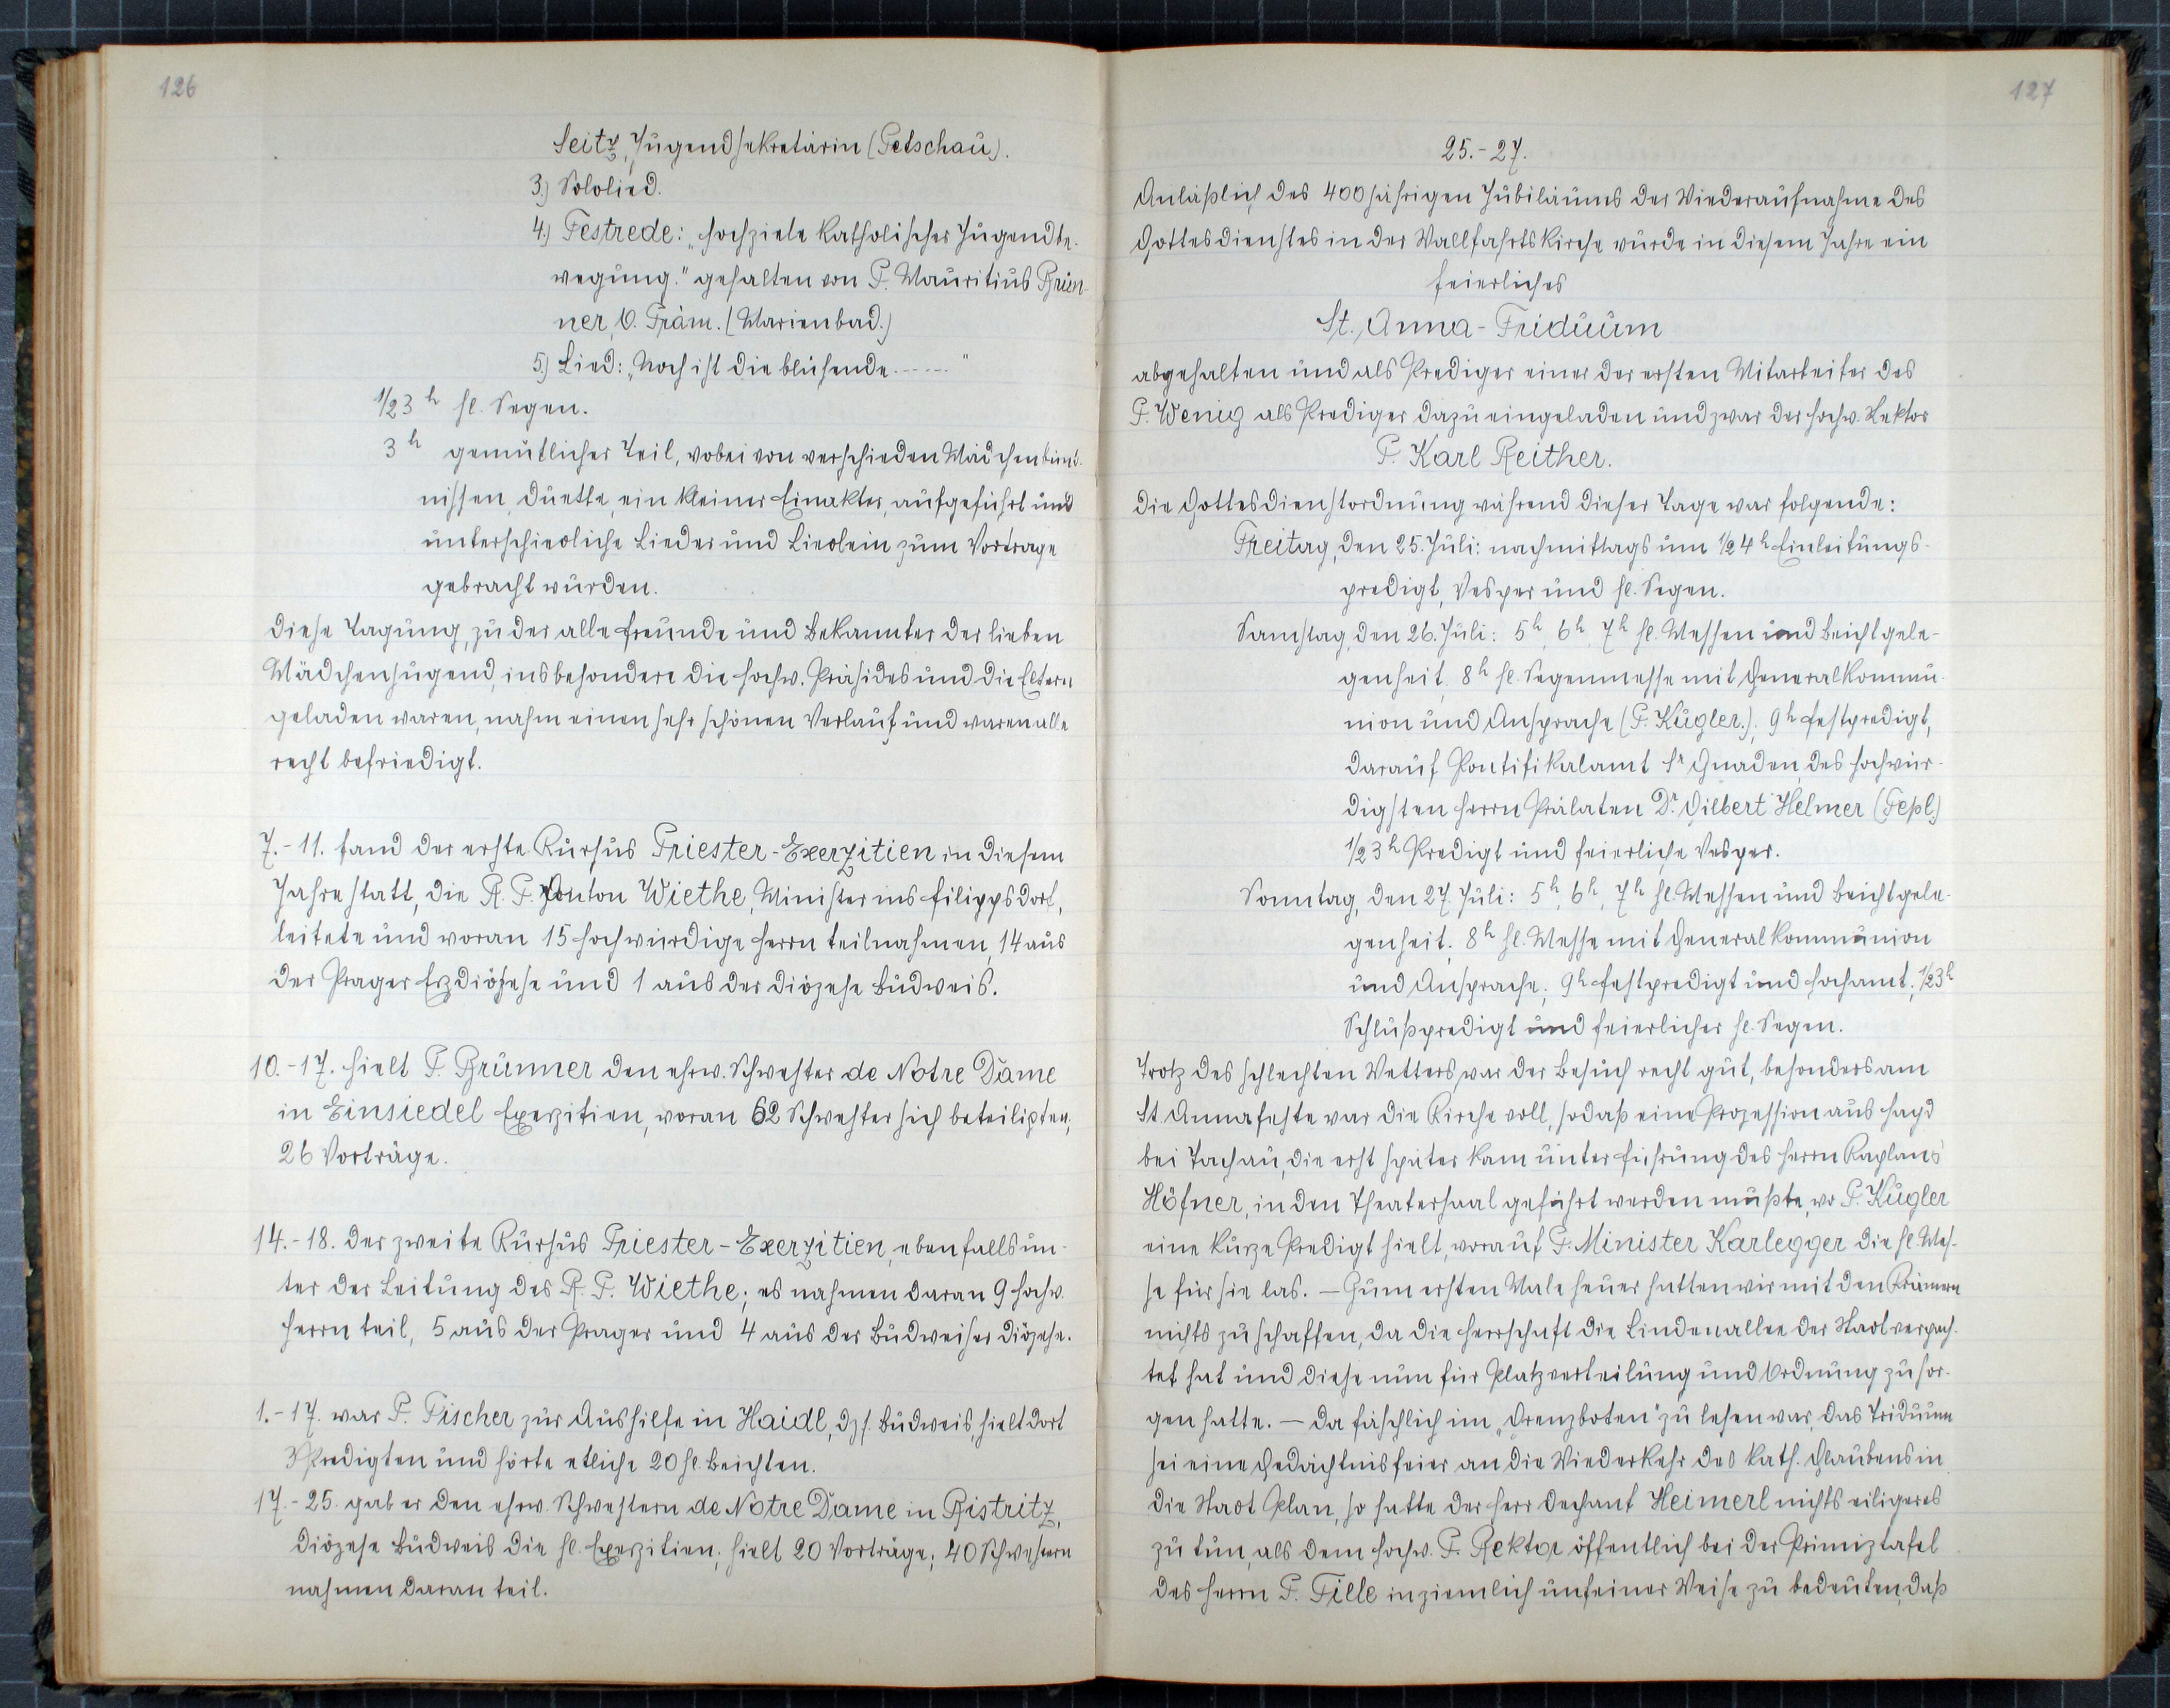 126
Seitz, Jugendsekretärin (Petschau).
3.) Sololied.
4.) Festrede: „Hochziele katholischer Jugendbe-
wegung." gehalten von P. Mauritius Brun-
ner, O. Präm. (Marienbad.)
5.) Lied: „Noch ist die blühende ....."
1/2 3 h hl. Segen.
3 h gemütlicher Teil, wobei von verschieden Mädchenbünd-
nissen, Duette, ein kleiner Einakter, aufgeführt und
unterschiedliche Lieder und Liedlein zum Vortrage
gebracht wurden.
Diese Tagung, zu der alle Freunde und Bekannter der lieben
Mädchenjugend, insbesondere die hochw. Präsides und die Eltern
geladen waren, nahm einen sehr schönen Verlauf und waren alle
recht befriedigt.
7.-11. fand der erste Kursus Priester-Exerzitien in diesem
Jahre statt, die R. P. Anton Wiethe, Minister ins Filippsdorf,
leitete und woran 15 hochwürdige Herrn teilnahmen, 14 aus
der Prager Erzdiözese und 1 aus der Diözese Budweis.
10.-17. hielt P. Brunner den ehrw. Schwester de Notre Dame
in Einsiedel Exerzitien, woran 62 Schwester sich beteiligten;
26 Vorträge.
14.-18. der zweite Kursus Priester-Exerzitien, ebenfalls un-
ter der Leitung des R. P. Wiethe; es nahmen daran 9 hochw.
Herrn teil, 5 aus der Prager und 4 aus der Budweiser Diözese.
1.-17. war P. Fischer zur Aushilfe in Haidl, Dzs. Budweis, hielt dort
3 Predigten und hörte etliche 20 hl. Beichten.
17.-25. gab er den ehrw. Schwestern de Notre Dame in Bistritz,
Diözese Budweis die hl. Exerzitien; hielt 20 Vorträge; 40 Schwestern
nahmen daran teil.
127
25.-27.
Anläßlich des 400 jährigen Jubiläums der Wiederaufnahme des
Gottesdienstes in der Wallfahrtskirche wurde in diesem Jahre ein
feierliches
St. Anna-Triduum
abgehalten und als Prediger einer der ersten Mitarbeiter des
P. Wenig als Prediger dazu eingeladen und zwar der hochw. Rektor
P. Karl Reither.
Die Gottesdienstordnung während dieser Tage war folgende:
Freitag, den 25. Juli: nachmittags um 1/2 4 h Einleitungs-
predigt, Vesper und hl. Segen.
Samstag, den 26. Juli: 5 h, 6 h, 7 h hl. Messen und Beichtgele-
genheit. 8 h hl. Segenmesse mit Generalkommu-
nion und Ansprache (P. Kugler.), 9 h Festpredigt,
darauf Pontifikalamt Sr Gnaden, des hochwür-
digsten Herrn Prälaten Dr. Gilbert Helmer (Tepl.)
1/2 3 h Predigt und feierliche Vesper.
Sonntag, den 27. Juli: 5 h, 6 h, 7 h hl. Messen und Beichtgele-
genheit. 8 h hl. Messe mit Generalkommunion
und Ansprache; 9 h Festpredigt und Hochamt; 1/2 3 h
Schlußpredigt und feierlicher hl. Segen.
Trotz des schlechten Wetters war der Besuch recht gut, besonders am
St. Annafeste war die Kirche voll, sodaß eine Prozession aus Hayd
bei Tachau, die erst später kam unter Führung des Herrn Kaplans
Höfner, in den Theatersaal geführt werden mußte, wo P. Kugler
eine kurze Predigt hielt, worauf P. Minister Karlegger die hl. Mes-
se für sie las. - Zum ersten Male heuer hatten wir mit den Krämern
nichts zu schaffen, da die Herrschaft die Lindenallee der Stadt verpach-
tet hat und diese nun für Platzverteilung und Ordnung zu sor-
gen hatte. - Da fäschlich im „Grenzboten" zu lesen war, das Triduum
sei eine Gedächtnisfeier an die Wiederkehr des kath. Glaubens in
die Stadt Plan, so hatte der Herr Dechant Heimerl nichts eiligeres
zu tun, als dem hochw. P. Rektor öffentlich bei der Primiztafel
des Herrn P. Tille in ziemlich unfeiner Weise zu bedeuten, daß